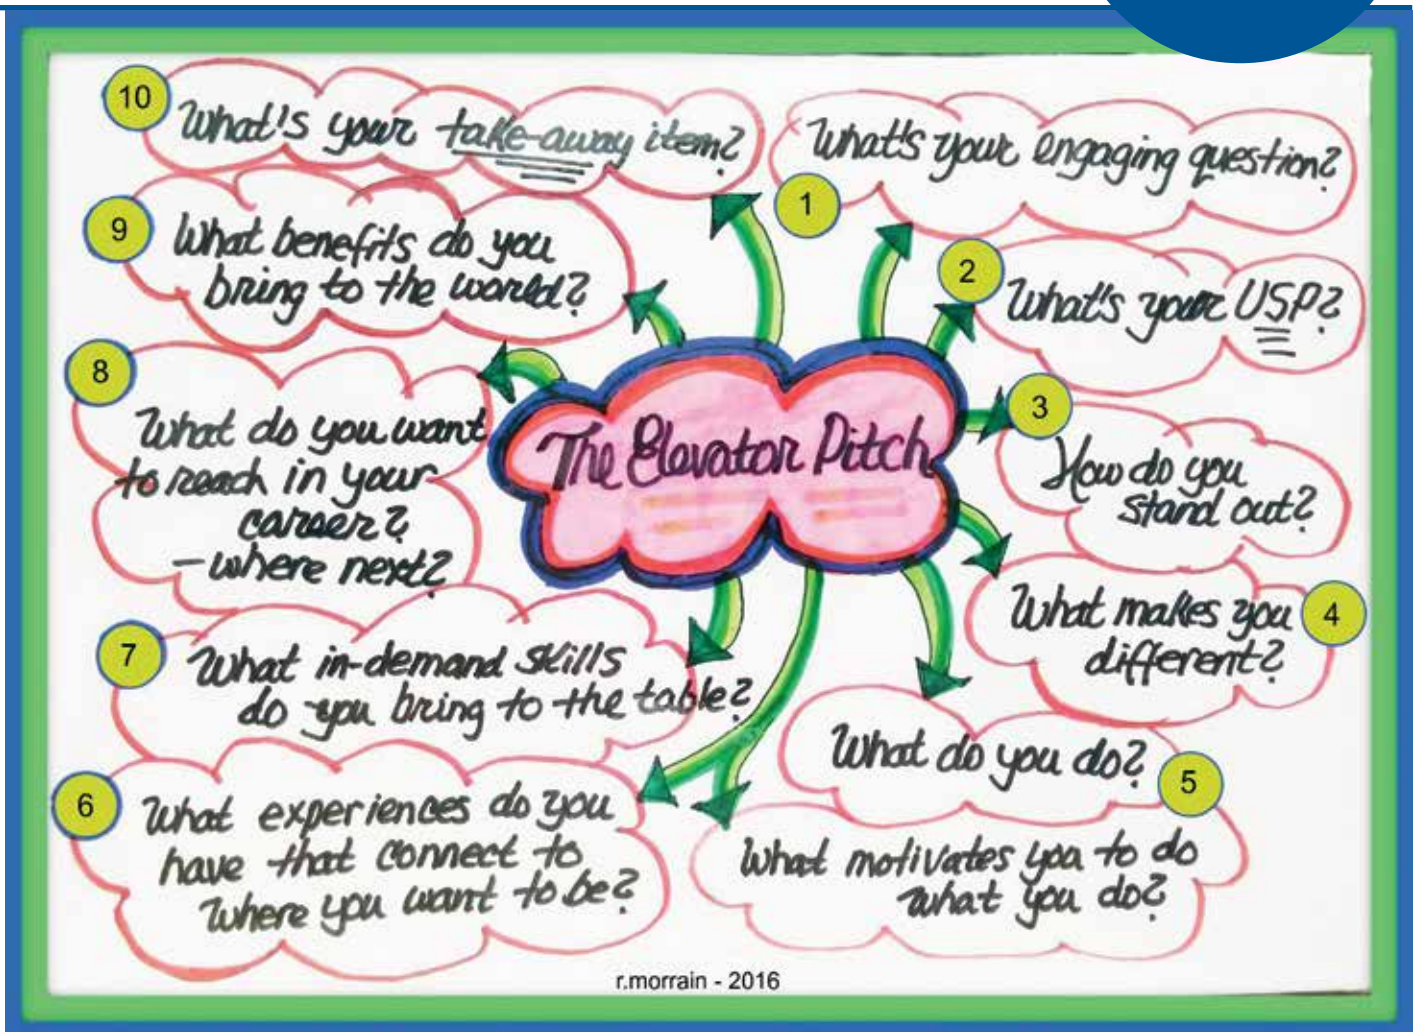 The Elevator Pitch
1
What's your engaging question?
2
What's your USP?
3
How do you
stand out?
4
What makes you
different?
5
What do you do?
What motivates you to do
what you do?
6
What experiences do you
have that connect to
where you want to be?
7
What in-demand skills
do you bring to the table?
8
What do you want
to reach in your
career?
- where next?
9
What benefits do you
bring to the world?
10
What's your take-away item?
r.morrain - 2016